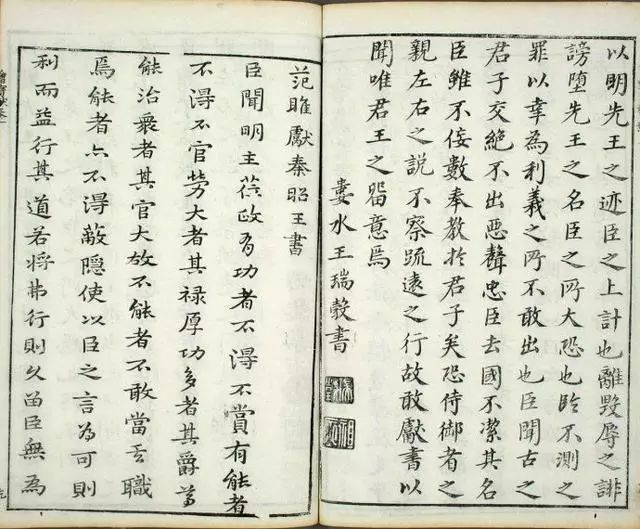 以明先王之迹臣之上計也離毀辱之誹
謗墮先王之名臣之所大恐也臨不測之
罪以幸為利義之所不敢出也臣聞古之
君子交絕不出惡聲忠臣去國不潔其名
臣雖不佞數奉教於君子矣恐侍御者之
親左右之說不察疏遠之行故敢獻書以
聞唯君王之留意焉
婁水王瑞糓書
范雎獻秦昭王書
臣聞明主蒞政有功者不得不賞有能者
不得不官勞大者其祿厚功多者其爵尊
能治衆者其官大故不能者不敢當其職
焉能者亦不得蔽隱使以臣之言為可則
利而益行其道若將弗行則久留臣無為